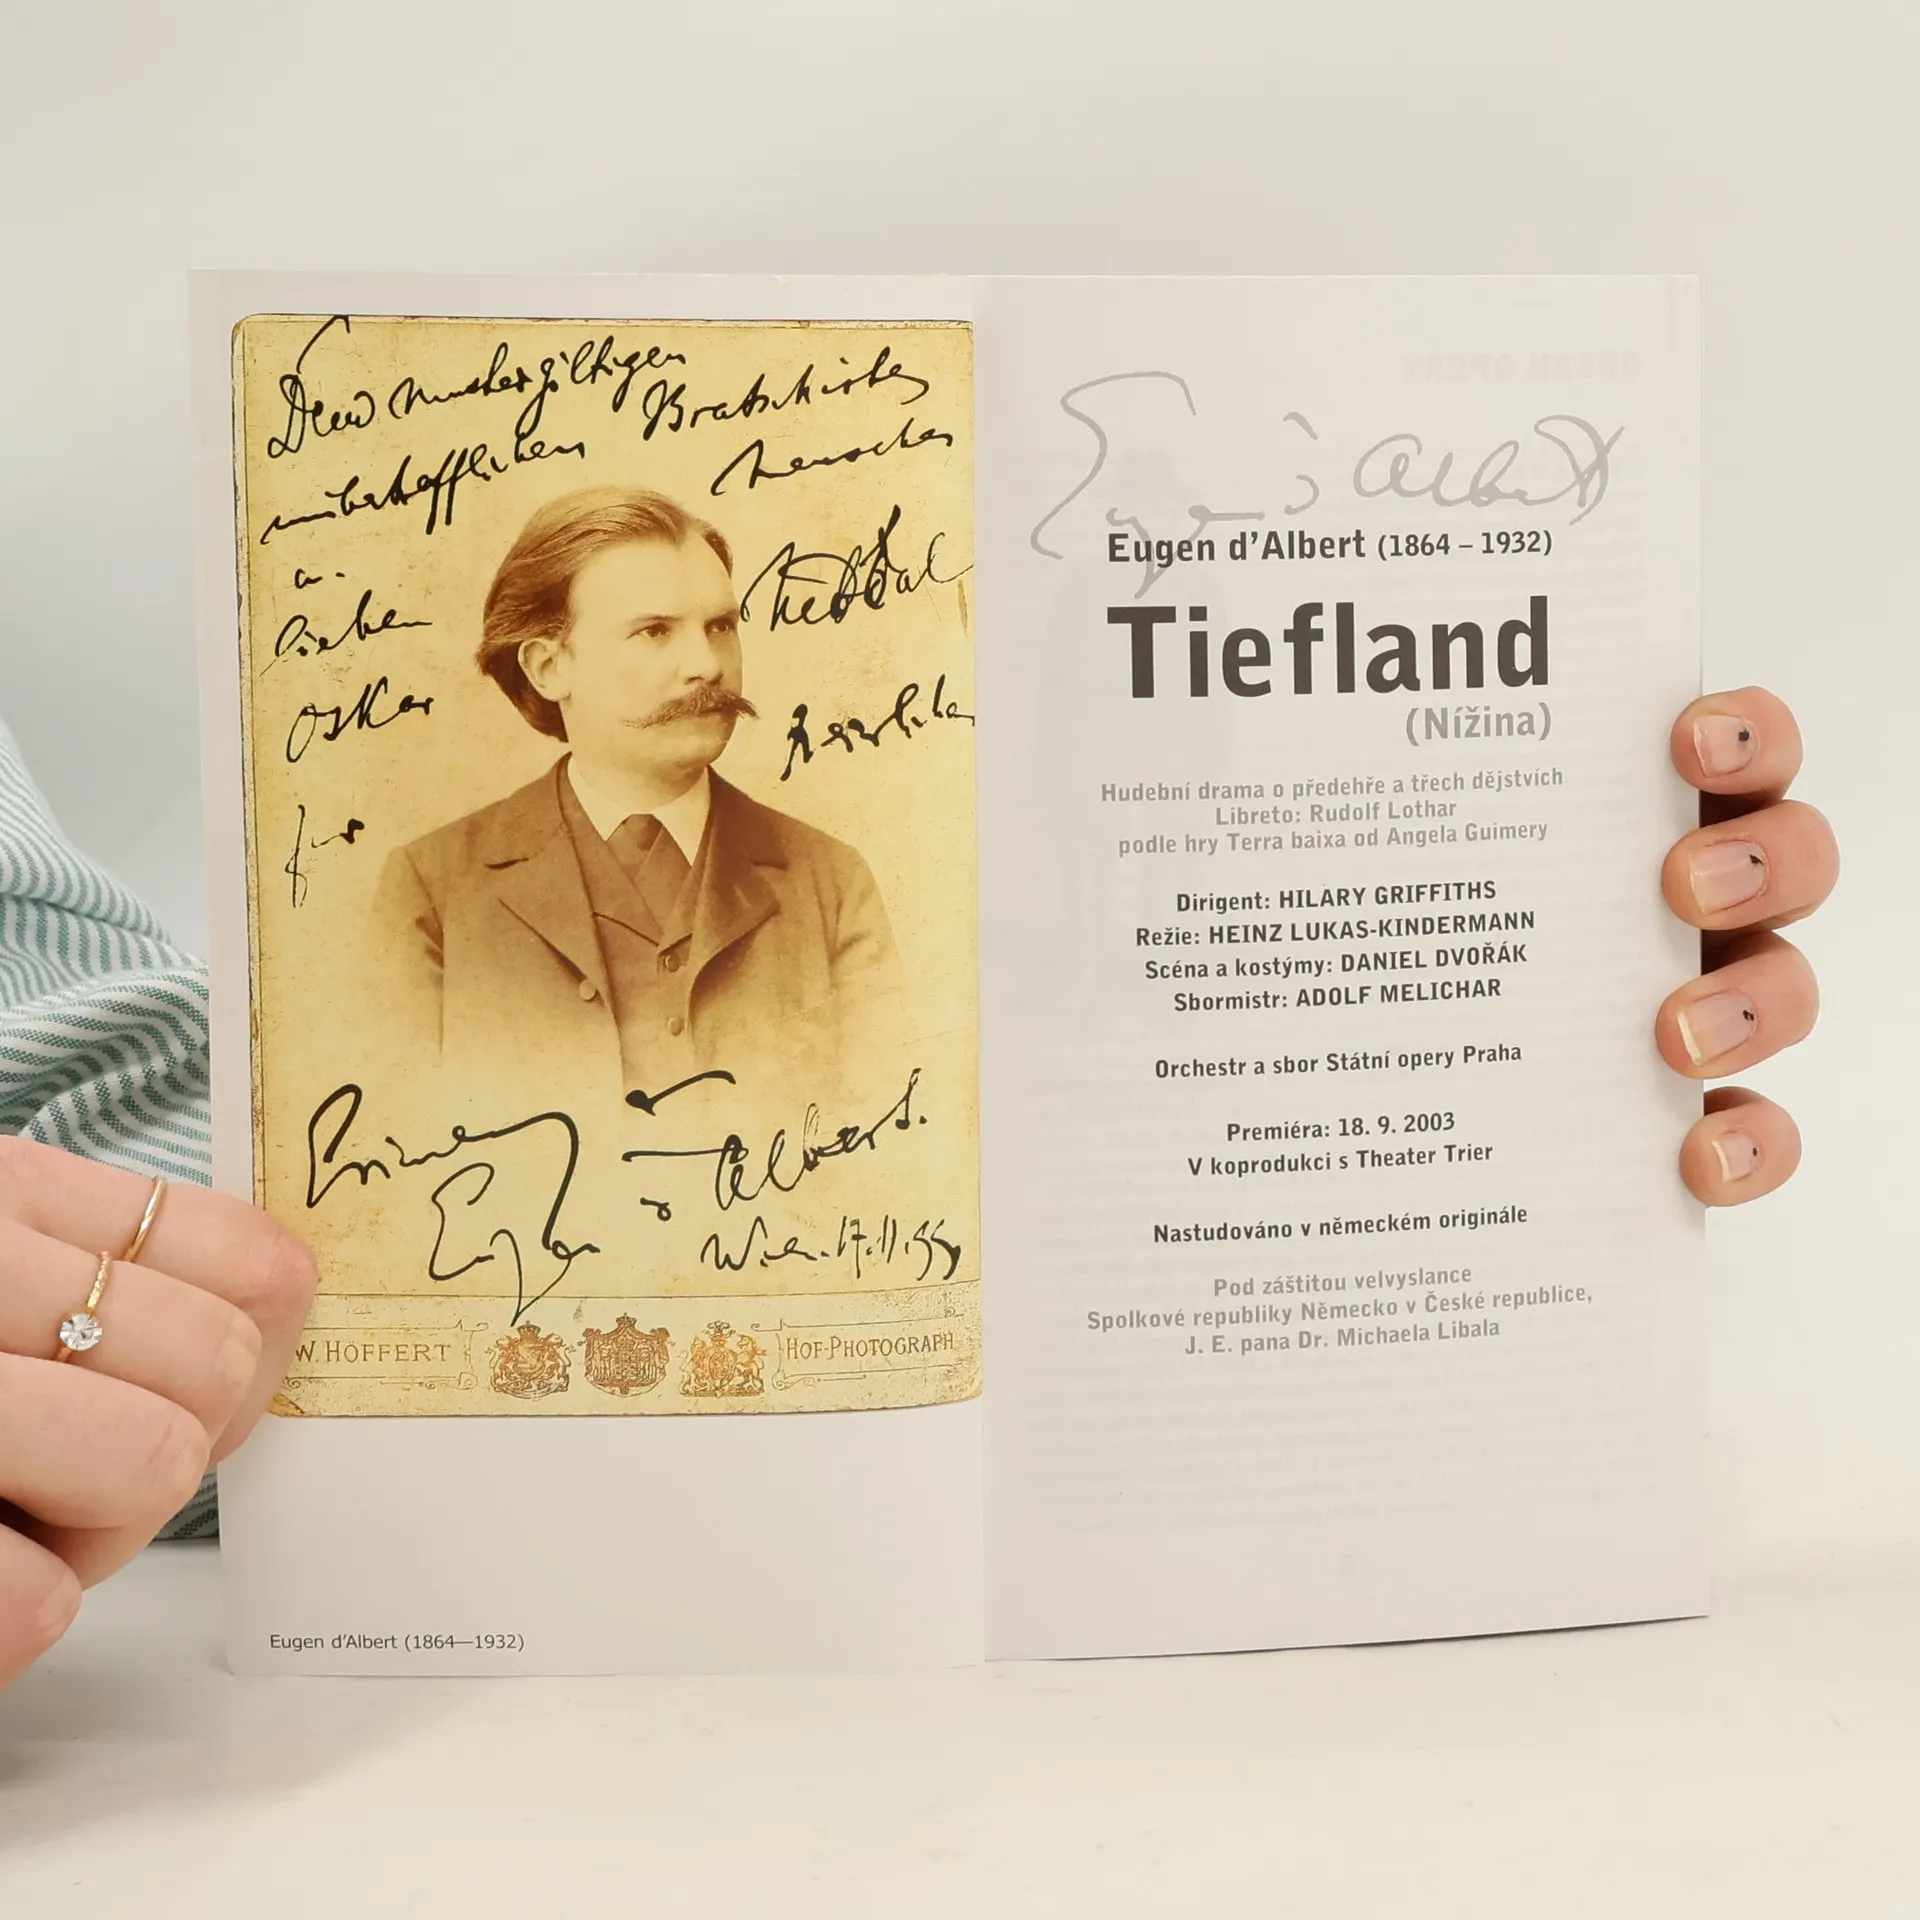 Dem mustergiltigen
Bratschisten
unübertrefflichen
Menschen
a.
lieben
Oskar
Nedbal
herzlichen
Erinnerung
Eugen d'Albert.
Wien. 17.11.
W. HÖFFERT
HOF-PHOTOGRAPH
Eugen d'Albert (1864—1932)
Eugen d'Albert
Eugen d'Albert (1864 – 1932)
Tiefland
(Nížina)
Hudební drama o předehře a třech dějstvích
Libreto: Rudolf Lothar
podle hry Terra baixa od Angela Guimery
Dirigent: HILARY GRIFFITHS
Režie: HEINZ LUKAS-KINDERMANN
Scéna a kostýmy: DANIEL DVOŘÁK
Sbormistr: ADOLF MELICHAR
Orchestr a sbor Státní opery Praha
Premiéra: 18. 9. 2003
V koprodukci s Theater Trier
Nastudováno v německém originále
Pod záštitou velvyslance
Spolkové republiky Německo v České republice,
J. E. pana Dr. Michaela Libala